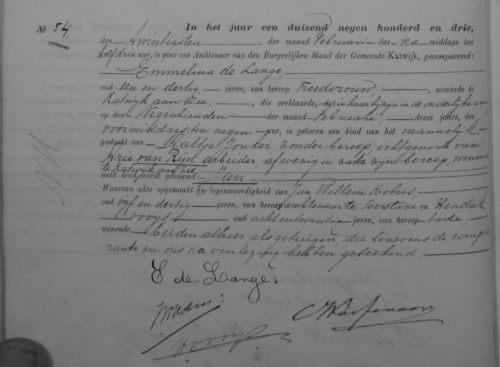 № 54. In het jaar een duizend negen honderd en drie,
den twintigsten der maand Februari des na middags ten
half drie ure, is voor ons Ambtenaar van den Burgerlijken Stand der Gemeente Katwijk, gecompareerd:
Emmelina de Lange,
oud een en dertig jaren, van beroep Vroedvrouw, wonende te
Katwijk aan Zee, die verklaarde, dat in haar bijzijn in de ouderlijke woning
op den Negentienden der maand Februari, dezes jaars, des
voormiddags ten negen ure, is geboren een kind van het mannelijk
geslacht van Aaltje Jonker zonder beroep echtgenoote van
Arie van Rijn arbeider, afwezig in zake zijn beroep, wonende
te Katwijk aan Zee, welk kind wordt genaamd Jan
Waarvan akte opgemaakt in tegenwoordigheid van Jan Willem
oud en dertig jaren, van beroep ambtenaar ter Secretarie en Hendrik
oud acht en twintig jaren, van beroep bode,
wonende beiden alhier als getuigen, die benevens de compa-
rante en ons na voorlezing hebben geteekend.
E de Lange.